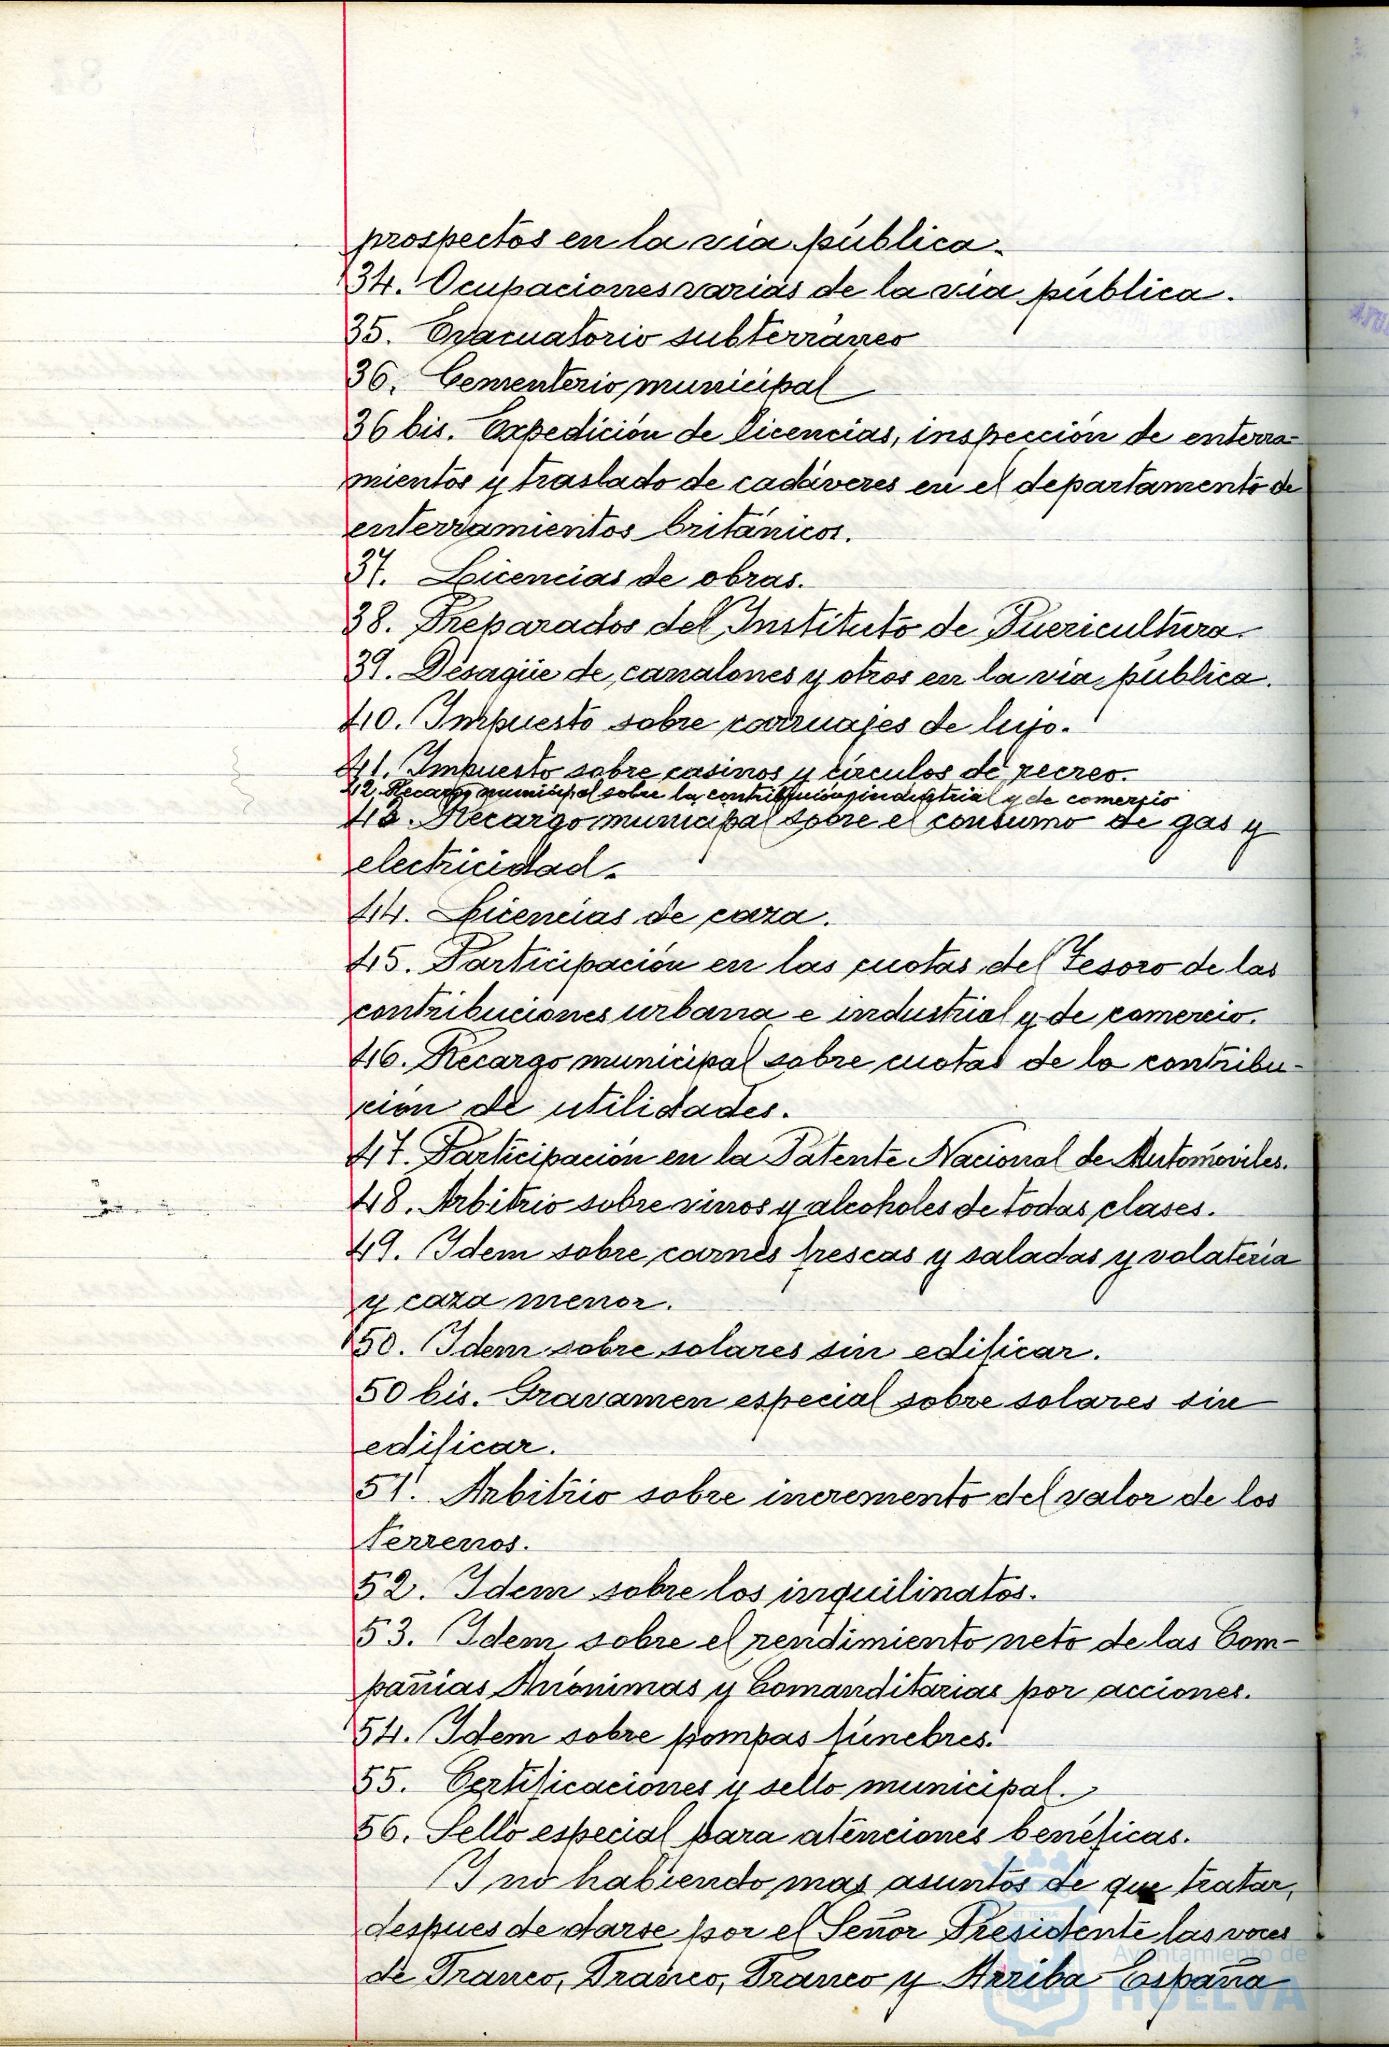 prospectos en la via pública.
34. Ocupaciones varias de la via pública.
35. Evacuatorio subterráneo
36. Cementerio municipal
36 bis. Expedición de licencias, inspección de enterra-
mientos y traslado de cadáveres en el departamento de
enterramientos británicos.
37. Licencias de obras.
38. Preparados del Instituto de Puericultura.
39. Desagüe de canalones y otros en la via pública.
40. Impuesto sobre carruajes de lujo.
41. Impuesto sobre casinos y círculos de recreo.
42. Recargo municipal sobre la contribución industrial y de comercio
43. Recargo municipal sobre el consumo de gas y
electricidad.
44. Licencias de caza.
45. Participación en las cuotas del Tesoro de las
contribuciones urbana e industrial y de comercio.
46. Recargo municipal sobre cuotas de la contribu-
ción de utilidades.
47. Participación en la Patente Nacional de Automóviles.
48. Arbitrio sobre vinos y alcoholes de todas clases.
49. Idem sobre carnes frescas y saladas y volatería
y caza menor.
50. Idem sobre solares sin edificar.
50 bis. Gravamen especial sobre solares sin
edificar.
51. Arbitrio sobre incremento del valor de los
terrenos.
52. Idem sobre los inquilinatos.
53. Idem sobre el rendimiento neto de las Com-
pañias Anónimas y Comanditarias por acciones.
54. Idem sobre pompas fúnebres.
55. Certificaciones y sello municipal.
56. Sello especial para atenciones benéficas.
Y no habiendo mas asuntos de que tratar,
despues de darse por el Señor Presidente las voces
de Franco, Franco, Franco y Arriba España
Ayuntamiento de
HUELVA